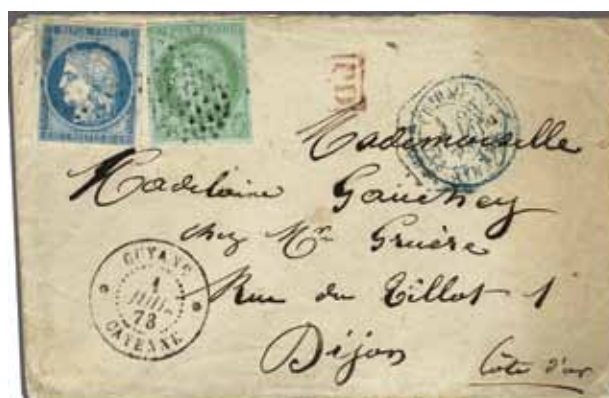 REPUB. FRANC.
PD
Mademoiselle
Madelaine Gauchey
chez Mr Gruère
Rue du Tillot 1
Dijon
Côte d'or
GUYANE
1
JUIL.
73
CAYENNE